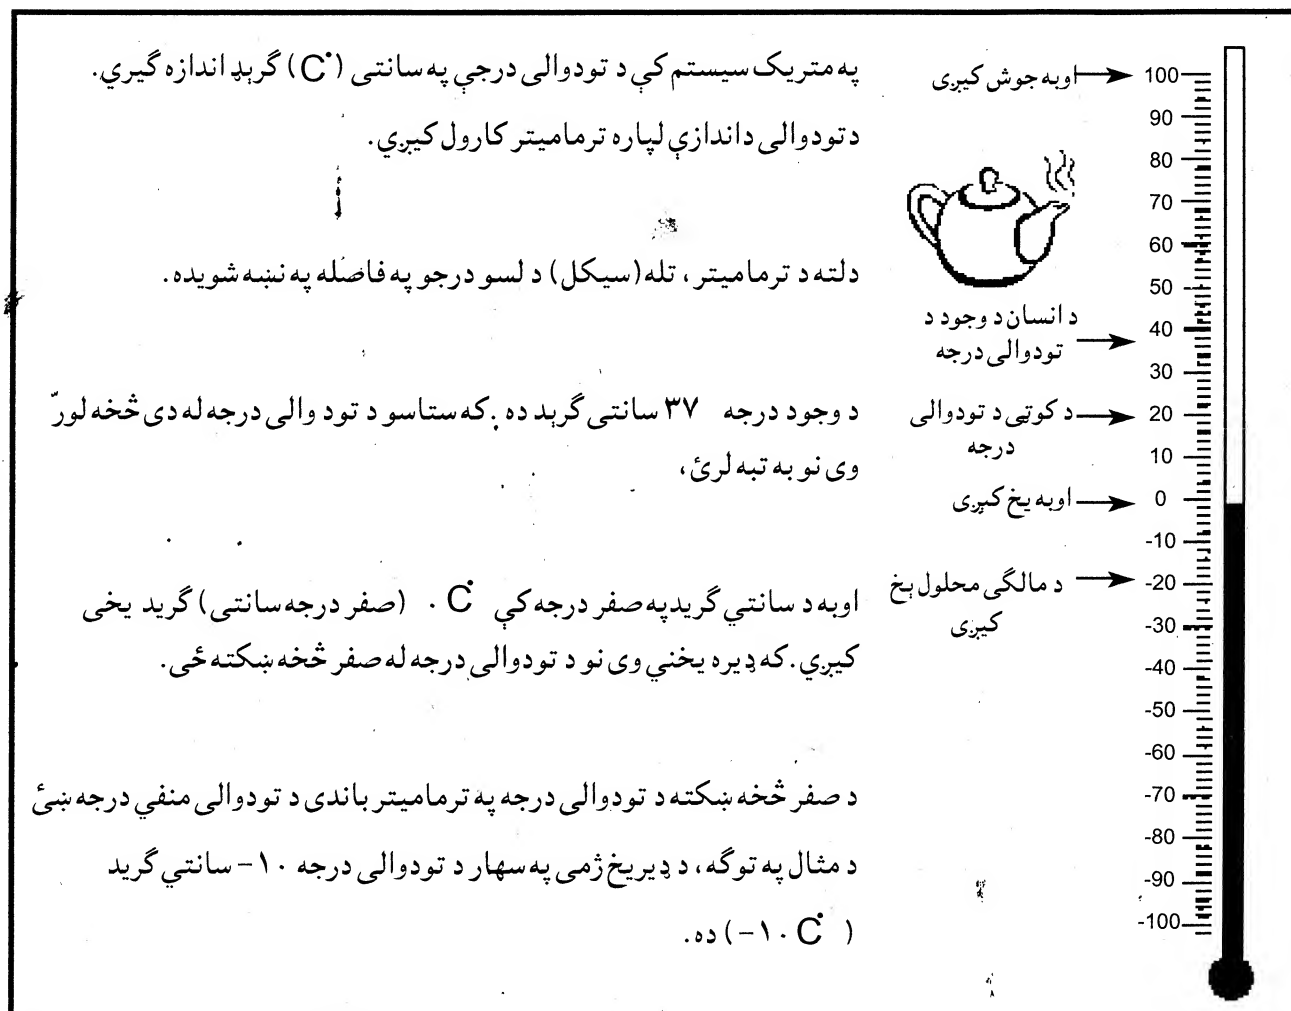 په متریک سیستم کې د تودوالی درجې په سانتی (C°) گرېډ اندازه گیري.
د تودوالی د اندازې لپاره ترمامیتر کارول کیږي.
دلته د ترمامیتر، تله (سیکل) د لسو درجو په فاصله په نښه شویده.
د وجود درجه ۳۷ سانتی گرېد ده. که ستاسو د تود والی درجه له دی څخه لوړ
وی نو به تبه لرئ،
اوبه د سانتي گرید په صفر درجه کې ۰ C° (صفر درجه سانتی) گرید یخی
کیږي. که ډیره یخني وی نو د تودوالی درجه له صفر څخه ښکته ځی.
د صفر څخه ښکته د تودوالی درجه په ترمامیتر باندی د تودوالی منفي درجه ښئ
د مثال په توگه، د ډیر یخ ژمی په سهار د تودوالی درجه ۱۰- سانتي گرید
(-۱۰ C°) ده.
اوبه جوش کیږی
د انسان د وجود د
تودوالی درجه
د کوټی د تودوالی
درجه
اوبه یخ کیږی
د مالگی محلول یخ
کیږی
100
90
80
70
60
50
40
30
20
10
0
-10
-20
-30
-40
-50
-60
-70
-80
-90
-100